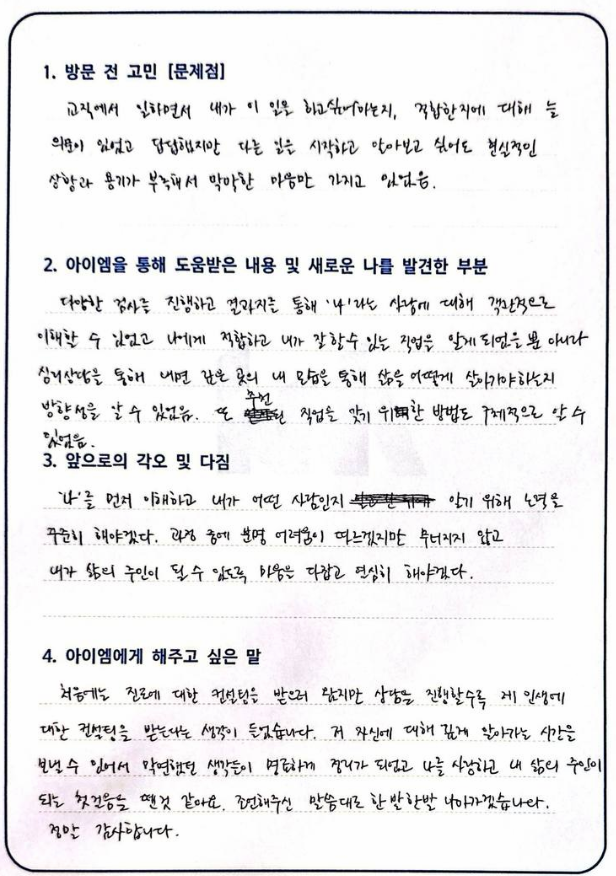 1. 방문 전 고민 [문제점]
교직에서 일하면서 내가 이 일을 하고싶어하는지, 적합한지에 대해 늘
의문이 있었고 답답했지만 다른 일은 시작하고 알아보고 싶어도 현실적인
상황과 용기가 부족해서 막막한 마음만 가지고 있었음.
2. 아이엠을 통해 도움받은 내용 및 새로운 나를 발견한 부분
다양한 검사를 진행하고 결과지를 통해 '나'라는 사람에 대해 객관적으로
이해할 수 있었고 나에게 적합하고 내가 잘할수 있는 직업을 알게되었을 뿐 아니라
심리상담을 통해 내면 깊은 곳의 내 모습을 통해 삶을 어떻게 살아가야하는지
방향성을 알 수 있었음. 또 추천된 직업을 갖기 위한 방법도 구체적으로 알 수
있었음.
3. 앞으로의 각오 및 다짐
'나'를 먼저 이해하고 내가 어떤 사람인지 알기 위해 노력을
꾸준히 해야겠다. 과정 중에 분명 어려움이 따르겠지만 무너지지 않고
내가 삶의 주인이 될 수 있도록 마음을 다잡고 열심히 해야겠다.
4. 아이엠에게 해주고 싶은 말
처음에는 진로에 대한 컨설팅을 받으러 왔지만 상담을 진행할수록 제 인생에
대한 컨설팅을 받는다는 생각이 들었습니다. 저 자신에 대해 깊게 알아가는 시간을
보낼 수 있어서 막연했던 생각들이 명료하게 정리가 되었고 나를 사랑하고 내 삶의 주인이
되는 첫걸음을 뗀것 같아요. 조언해주신 말씀대로 한발한발 나아가겠습니다.
정말 감사합니다.